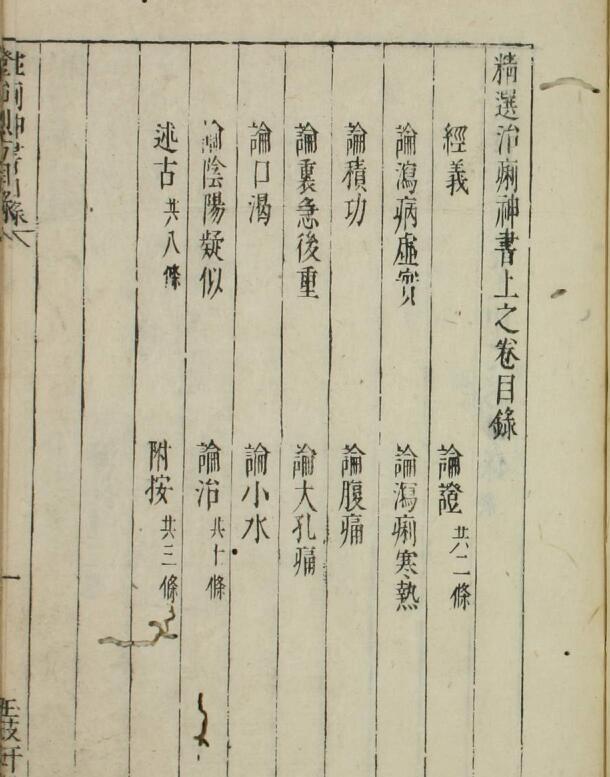 精選治痢神書上之卷目錄
經義 論證 共二條
論瀉病虛實 論瀉痢寒熱
論積功 論腹痛
論裏急後重 論大孔痛
論口渴 論小水
論陰陽疑似 論治 共十條
述古 共八條 附按 共三條
一